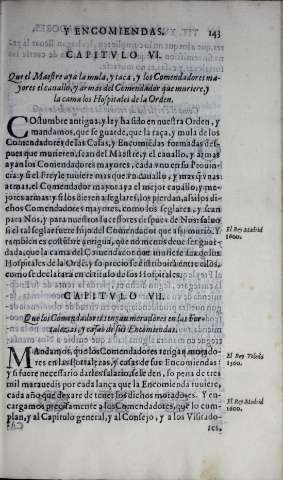 Y ENCOMIENDAS. 143
CAPITVLO VI.
Que el Maestre aya la mula, y taca, y los Comendadores ma-
yores el cauallo, y armas del Comendador que muriere, y
la cama los Hospitales de la Orden.
COstumbre antigua, y ley ha sido en nuestra Orden, y
mandamos, que se guarde, que la taça, y mula de los
Comendadores de las Casas, y Encomiēdas formadas des-
pues que murieren, sean del Maestre, y el cauallo, y armas
ayan los Comendadores mayores, cada vno en su Prouin-
cia: y si el Freyle tuuiere mas que vn cauallo, y mas q̃ vnas
armas, el Comendador mayor aya el mejor cauallo, y me-
jores armas: y si los dieren a seglares, los pierdan, assi los di-
chos Comendadores mayores, como los seglares, y sean
para Nos, y para nuestros successores despues de Nos: saluo
si el tal seglar fuere hijo del Comendador que assi murio. Y
tambien es costũbre antigua, que no menos deue ser guar-
dada, que la cama del Comendador que muriere sea de los
Hospitales de la Ordẽ, y su precio se distribuirà entre ellos,
como se declararà en el titulo de los Hospitales.
El Rey Madrid
1600.
CAPITVLO VII.
Que los Comendadores tengan moradores en las For-
talezas, y casas de sus Encomiendas.
MAndamos, que los Comendadores tengan morado-
res en las fortalezas, y casas de sus Encomiendas:
y si fuere necessario darles salario, se le den, so pena de tres
mil marauedis por cada lança que la Encomienda tuuiere,
cada año que dexare de tener los dichos moradores. Y en-
cargamos precisamente a los Comendadores, que lo cum-
plan, y al Capitulo general, y al Consejo, y a los Visitado-
res,
El Rey Toledo
1560.
El Rey Madrid
1600.